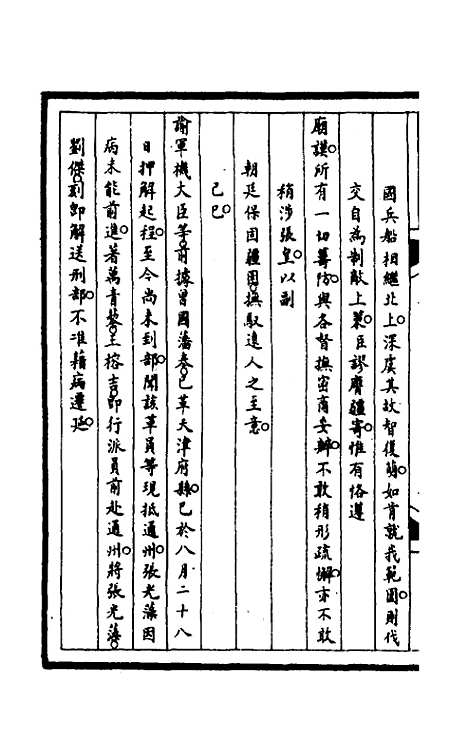 國兵船相繼北上。深虞其故智復萌。如肯就我範圍。則伐
交自為制敵上策。臣謬膺疆寄。惟有恪遵
廟謨。所有一切籌防。與各督撫密商妥辦。不敢稍形疏懈。亦不敢
稍涉張皇。以副
朝廷保固疆圉。撫馭遠人之至意。
己巳。
諭軍機大臣等。前據曾國藩奏。已革天津府縣。已於八月二十八
日押解起程。至今尚未到部。聞該革員等現抵通州。張光藻因
病未能前進。著萬青藜。王榕吉。即行派員前赴通州。將張光藻。
劉傑。剋即解送刑部。不准藉病遷延。